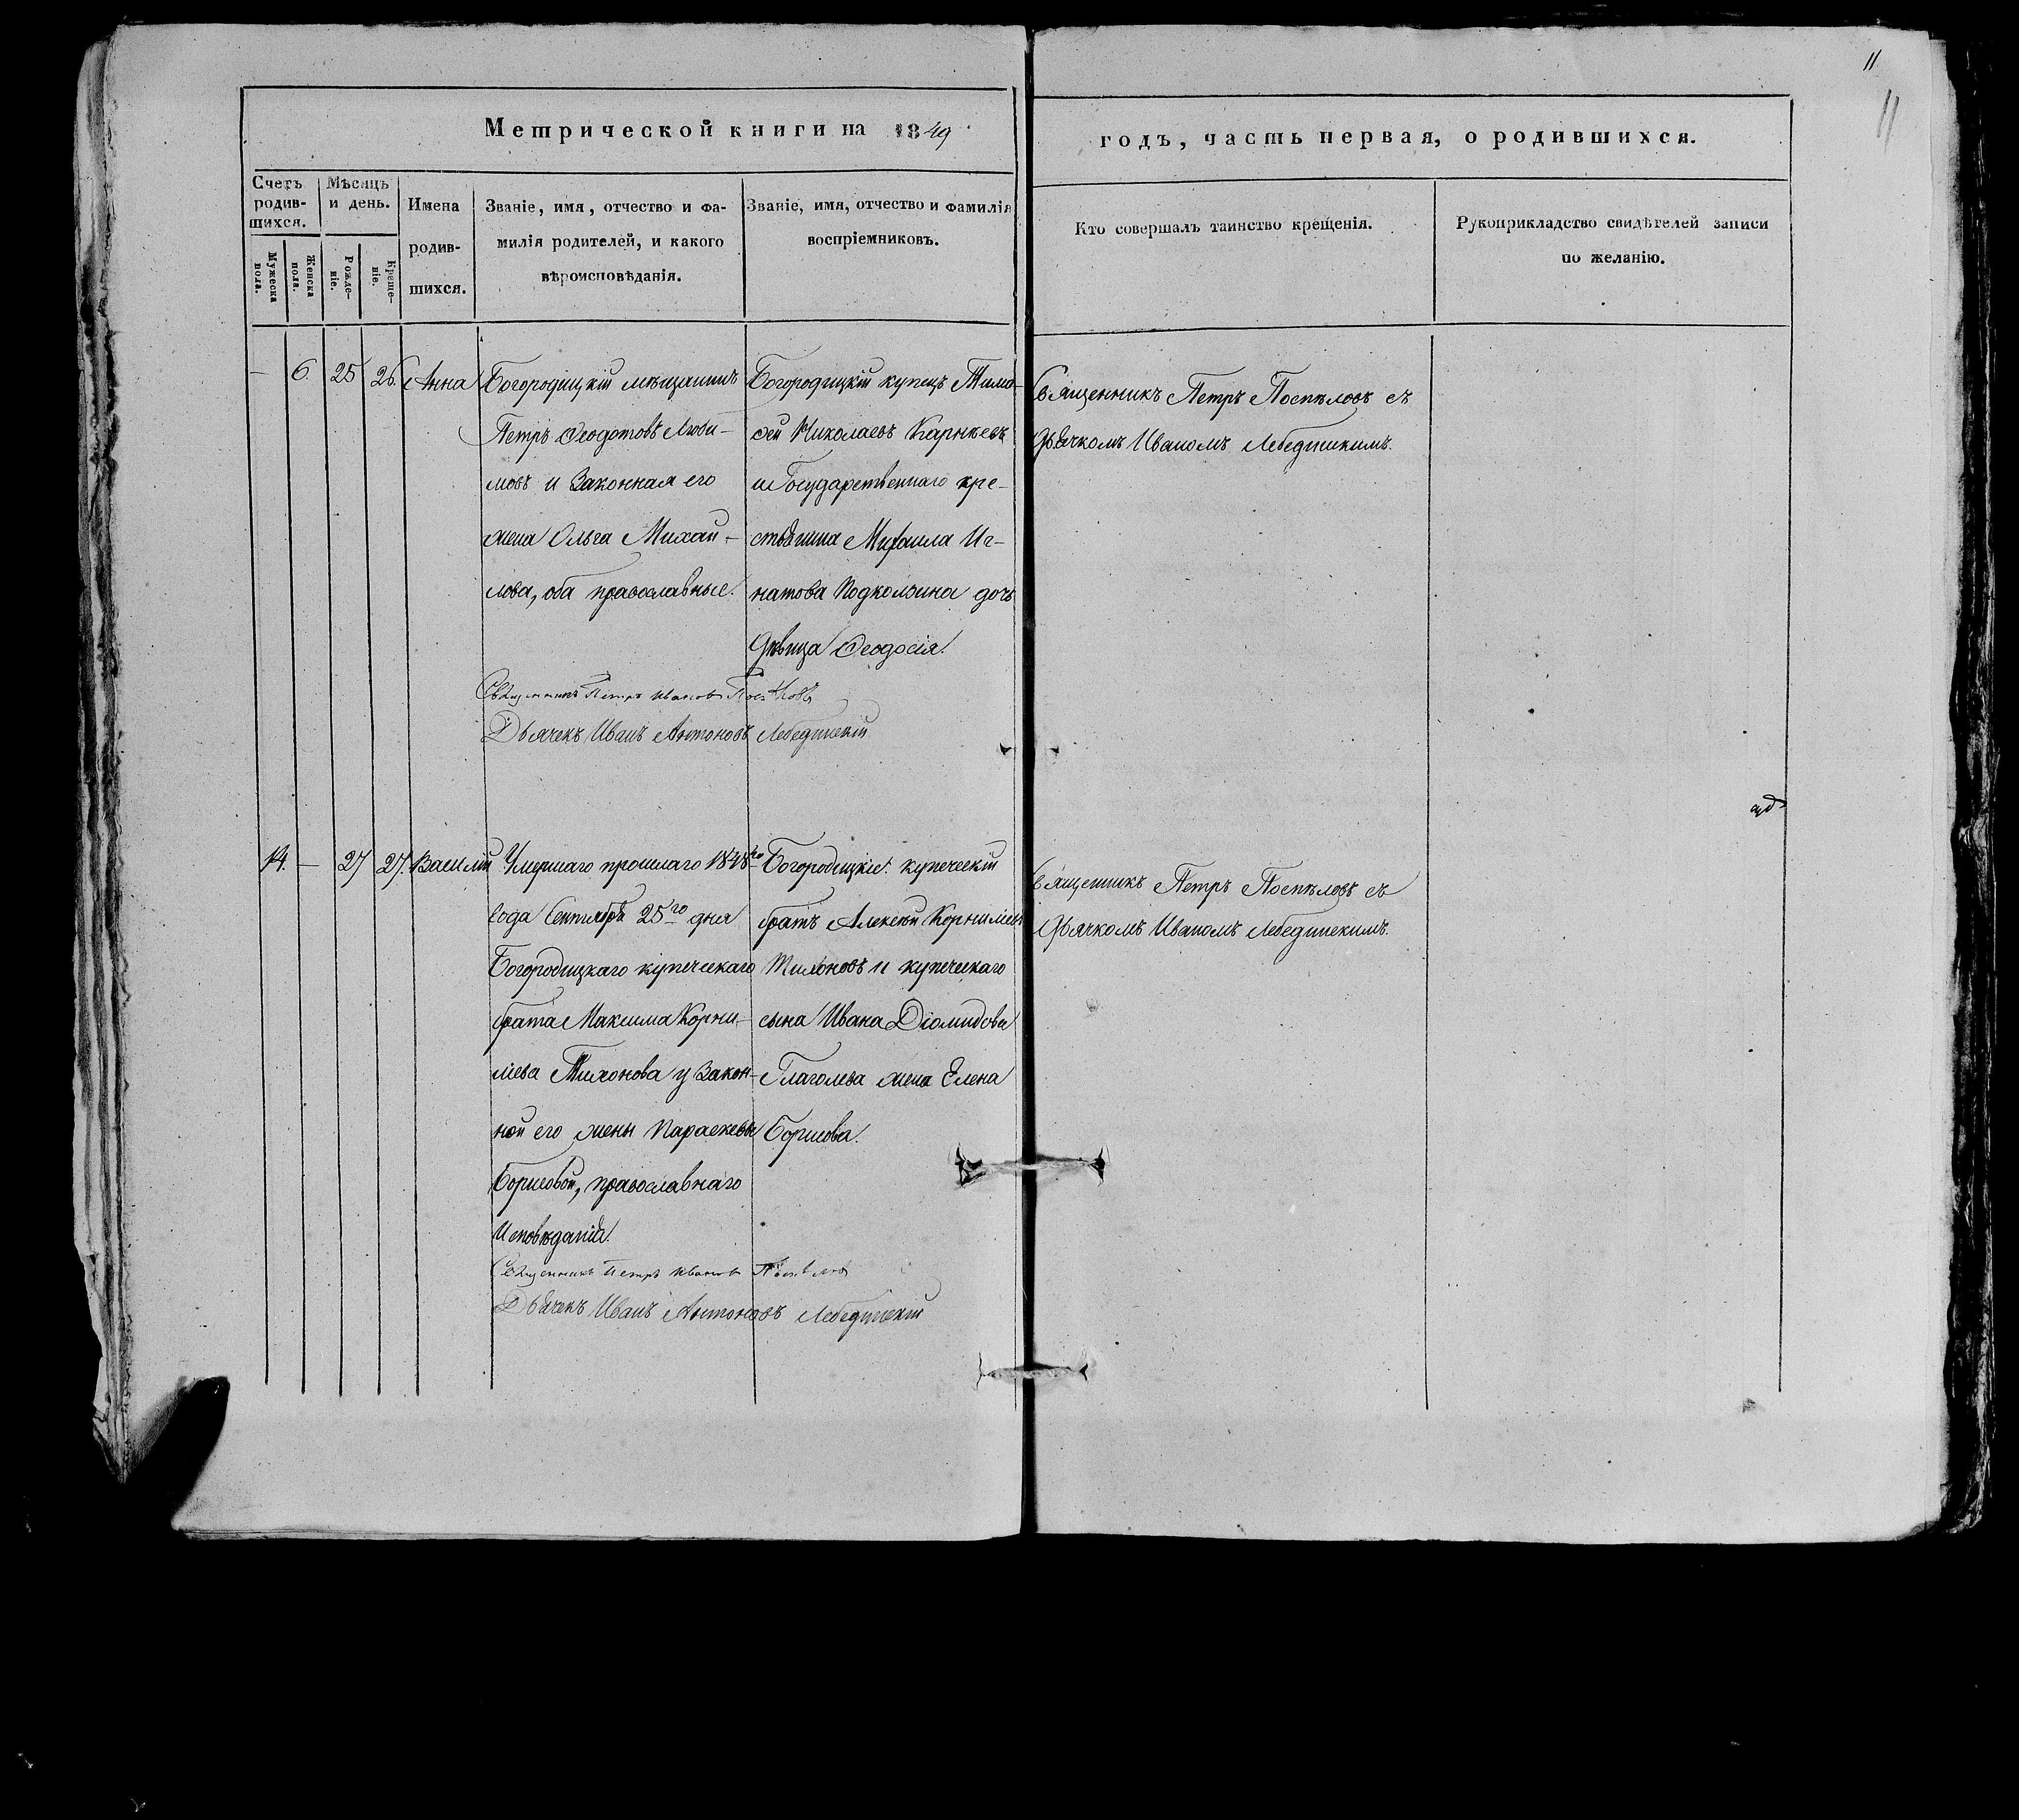 11
11
Метрической книги на 1849
годъ, часть первая, о родившихся.
Счетъ родив-шихся.
Мѣсяцъ и день.
Мужеска пола.
Женска пола.
Рожде-ніе.
Креще-ніе.
Имена родив-шихся.
Званіе, имя, отчество и фа-
милія родителей, и какого
вѣроисповѣданія.
Званіе, имя, отчество и фамилія
воспріемниковъ.
Кто совершалъ таинство крещенія.
Рукоприкладство свидѣтелей записи
по желанію.
— 6. 25 26. Анна
Богородицкій мѣщанинъ
Петръ Ѳеодотовъ Люби-
мовъ и Законная его
жена Ольга Михай-
лова, оба православные.
Богородицкій купецъ Тимо-
ѳей Николаевъ
и Государственнаго кре-
стьянина Михаила Иг-
натова Подкользина дочь
Дѣвица Ѳеодосія.
Священникъ Петръ Поспѣловъ съ
Дьячкомъ Иваномъ Лебединскимъ.
Священникъ Петръ Ивановъ Поспѣловъ
Дьячекъ Иванъ Антоновъ Лебединскій
14. — 27 27. Василій
Умершаго прошлаго 1848го
Года Сентября 25го дня
Богородицкаго купеческаго
брата Максима Корни-
лиева Тихонова у Закон-
ной его жены Параскевы
Борисовой, православнаго
Исповѣданія.
Богородицкіе: купеческій
братъ Алексѣй Корнилиевъ
Тихоновъ и купеческаго
сына Ивана Діомидова
Глаголева жена Елена
Борисова.
Священникъ Петръ Поспѣловъ съ
Дьячкомъ Иваномъ Лебединскимъ.
Священникъ Петръ Ивановъ Поспѣловъ
Дьячекъ Иванъ Антоновъ Лебединскій